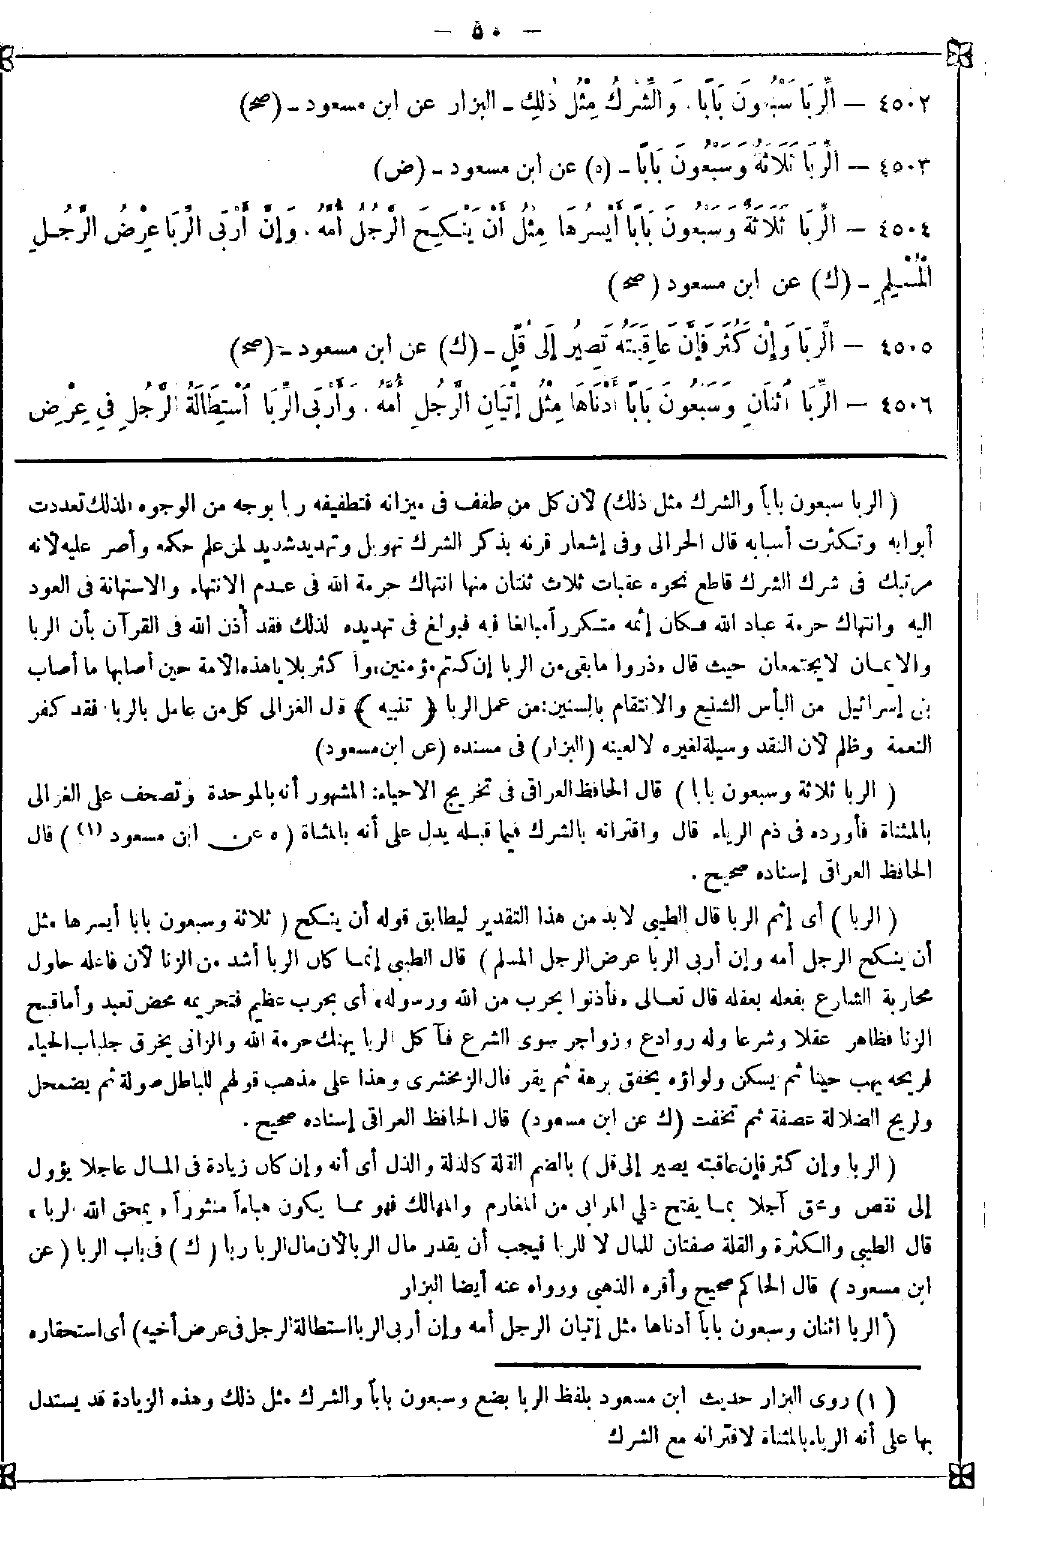 — ٥٠ —
٤٥٠٢ — الرِّبَا سَبْعُونَ بَابًا. وَالشِّرْكُ مِثْلُ ذَلِكَ - البزار عن ابن مسعود - (صح)
٤٥٠٣ — الرِّبَا ثَلَاثَةٌ وَسَبْعُونَ بَابًا - (ه) عن ابن مسعود - (ض)
٤٥٠٤ — الرِّبَا ثَلَاثَةٌ وَسَبْعُونَ بَابًا أَيْسَرُهَا مِثْلُ أَنْ يَنْكِحَ الرَّجُلُ أُمَّهُ. وَإِنَّ أَرْبَى الرِّبَا عِرْضُ الرَّجُلِ
الْمُسْلِمِ - (ك) عن ابن مسعود (صح)
٤٥٠٥ — الرِّبَا وَإِنْ كَثُرَ فَإِنَّ عَاقِبَتَهُ تَصِيرُ إِلَى قُلٍّ - (ك) عن ابن مسعود - (صح)
٤٥٠٦ — الرِّبَا اثْنَانِ وَسَبْعُونَ بَابًا أَدْنَاهَا مِثْلُ إِتْيَانِ الرَّجُلِ أُمَّهُ. وَأَرْبَى الرِّبَا اسْتِطَالَةُ الرَّجُلِ فِي عِرْضِ
( الربا سبعون باباً والشرك مثل ذلك) لأن كل من طفف فى ميزانه فتطفيفه ربا بوجه من الوجوه فلذلك تعددت
أبوابه وتكثرت أسبابه قال الحرالى وفى إشعار قرنه بذكر الشرك تهويل وتهديد شديد لمن علم حكمه وأصر عليه لأنه
مرتبك فى شرك الشرك قاطع نحوه عقبات ثلاث ثنتان منها انتهاك حرمة الله فى عدم الانتهاء والاستهانة فى العود
اليه وانتهاك حرمة عباد الله فكان إثمه متكرراً مبالغا فيه فبولغ فى تهديده لذلك فقد أذن الله فى القرآن بأن الربا
والايمان لا يجتمعان حيث قال «ذروا ما بقى من الربا إن كنتم مؤمنين» وأكثر بلايا هذه الأمة حين أصابها ما أصاب
بنى إسرائيل من البأس الشنيع والانتقام بالسنين: من عمل الربا ( تنبيه ) قال الغزالى كل من عامل بالربا فقد كفر
النعمة وظلم لأن النقد وسيلة لغيره لا لعينه (البزار) فى مسنده (عن ابن مسعود)
( الربا ثلاثة وسبعون بابا ) قال الحافظ العراقى فى تخريج الاحياء: المشهور أنه بالموحدة وتصحف على الغزالى
بالمثناة فأورده فى ذم الرياء قال واقترانه بالشرك فيما قبله يدل على أنه بالمثناة ( ه عن ابن مسعود (١) ) قال
الحافظ العراقى إسناده صحيح .
( الربا ) أى إثم الربا قال الطيبى لابد من هذا التقدير ليطابق قوله أن ينكح ( ثلاثة وسبعون بابا أيسرها مثل
أن ينكح الرجل أمه وإن أربى الربا عرض الرجل المسلم ) قال الطيبى إنما كان الربا أشد من الزنا لأن فاعله حاول
محاربة الشارع بفعله بعقله قال تعالى «فأذنوا بحرب من الله ورسوله» أى بحرب عظيم فتحريمه محض تعبد وأما قبح
الزنا فظاهر عقلا وشرعا وله روادع وزواجر سوى الشرع فآكل الربا يهتك حرمة الله والزانى يخرق جلباب الحياء
فريحه يهب حينا ثم يسكن ولواؤه يخفق برهة ثم يقر قال الزمخشرى وهذا على مذهب قولهم للباطل صولة ثم يضمحل
ولريح الضلالة عصفة ثم تخفت (ك عن ابن مسعود) قال الحافظ العراقى إسناده صحيح .
( الربا وإن كثر فإن عاقبته يصير إلى قل ) بالضم القلة كالذلة والذل أى أنه وإن كان زيادة فى المال عاجلا يؤول
إلى نقص ومحق آجلا بما يفتح على المرابى من المغارم والمهالك فهو مما يكون هباءاً منثوراً «يمحق الله الربا»
قال الطيبى والكثرة والقلة صفتان للمال لا للربا فيجب أن يقدر مال الربا لأن مال الربا ربا ( ك ) فى باب الربا ( عن
ابن مسعود ) قال الحاكم صحيح وأقره الذهبى ورواه عنه أيضا البزار
( الربا اثنان وسبعون باباً أدناها مثل إتيان الرجل أمه وإن أربى الربا استطالة الرجل فى عرض أخيه) أى استحقاره
( ١ ) روى البزار حديث ابن مسعود بلفظ الربا بضع وسبعون باباً والشرك مثل ذلك وهذه الزيادة قد يستدل
بها على أنه الرياء بالمثناة لاقترانه مع الشرك